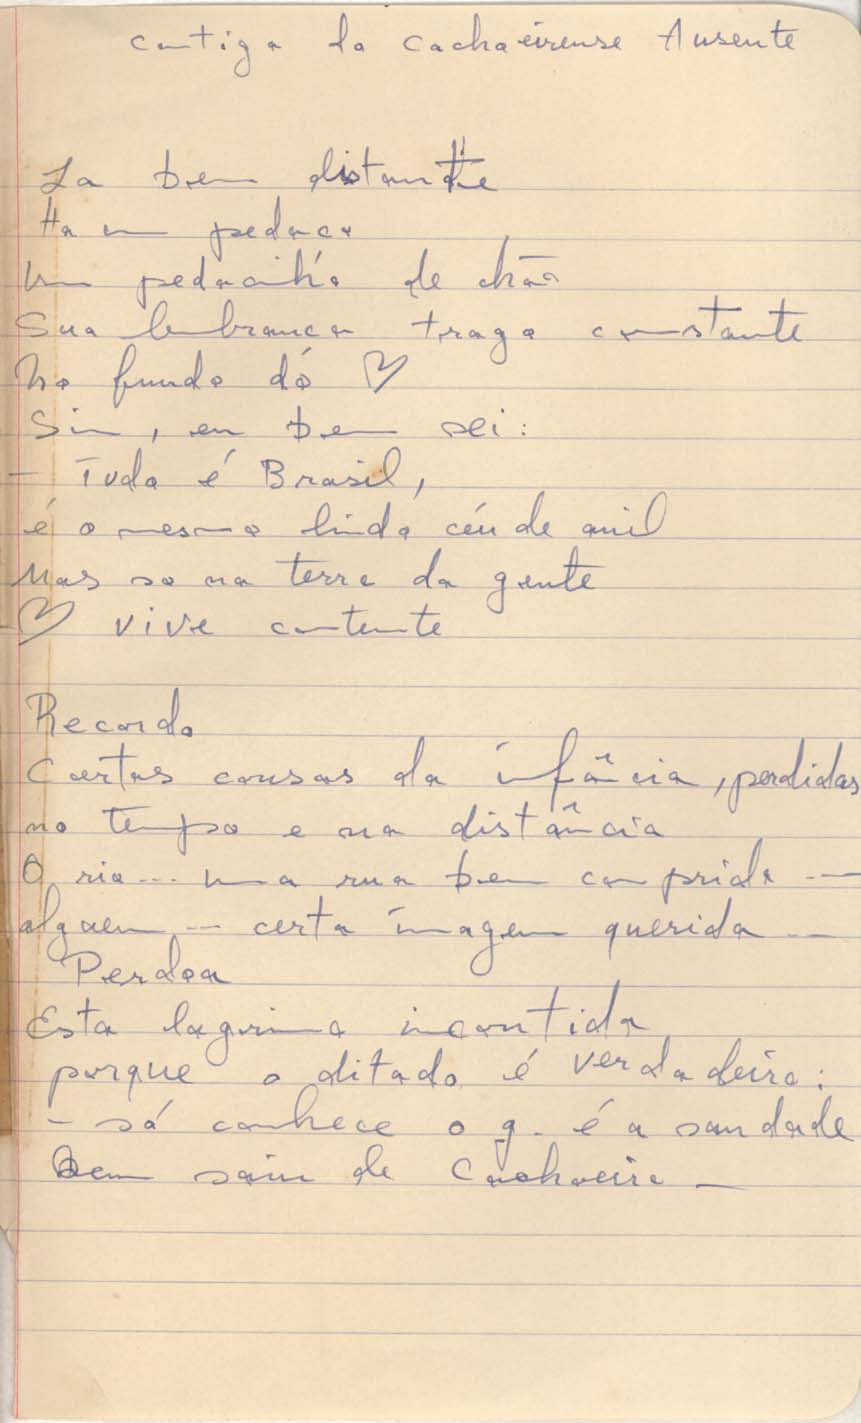 cantiga do cachoeirense Ausente
La bem distante
Ha um pedaco
Um pedacinho de chão
Sua lembranca trago constante
No fundo dó ♡
Sim, eu bem sei:
- Tudo é Brasil,
é o mesmo lindo céu de anil
Mas so na terra da gente
♡ vive contente
Recordo
Certas cousas da infância, perdidas
no tempo e na distância
O rio... uma rua bem comprida --
alguem -- certa imagem querida --
Perdoa
Esta lagrima incontida
porque o ditado é verdadeiro:
- só conhece o q. é a saudade
Quem saiu de Cachoeiro -